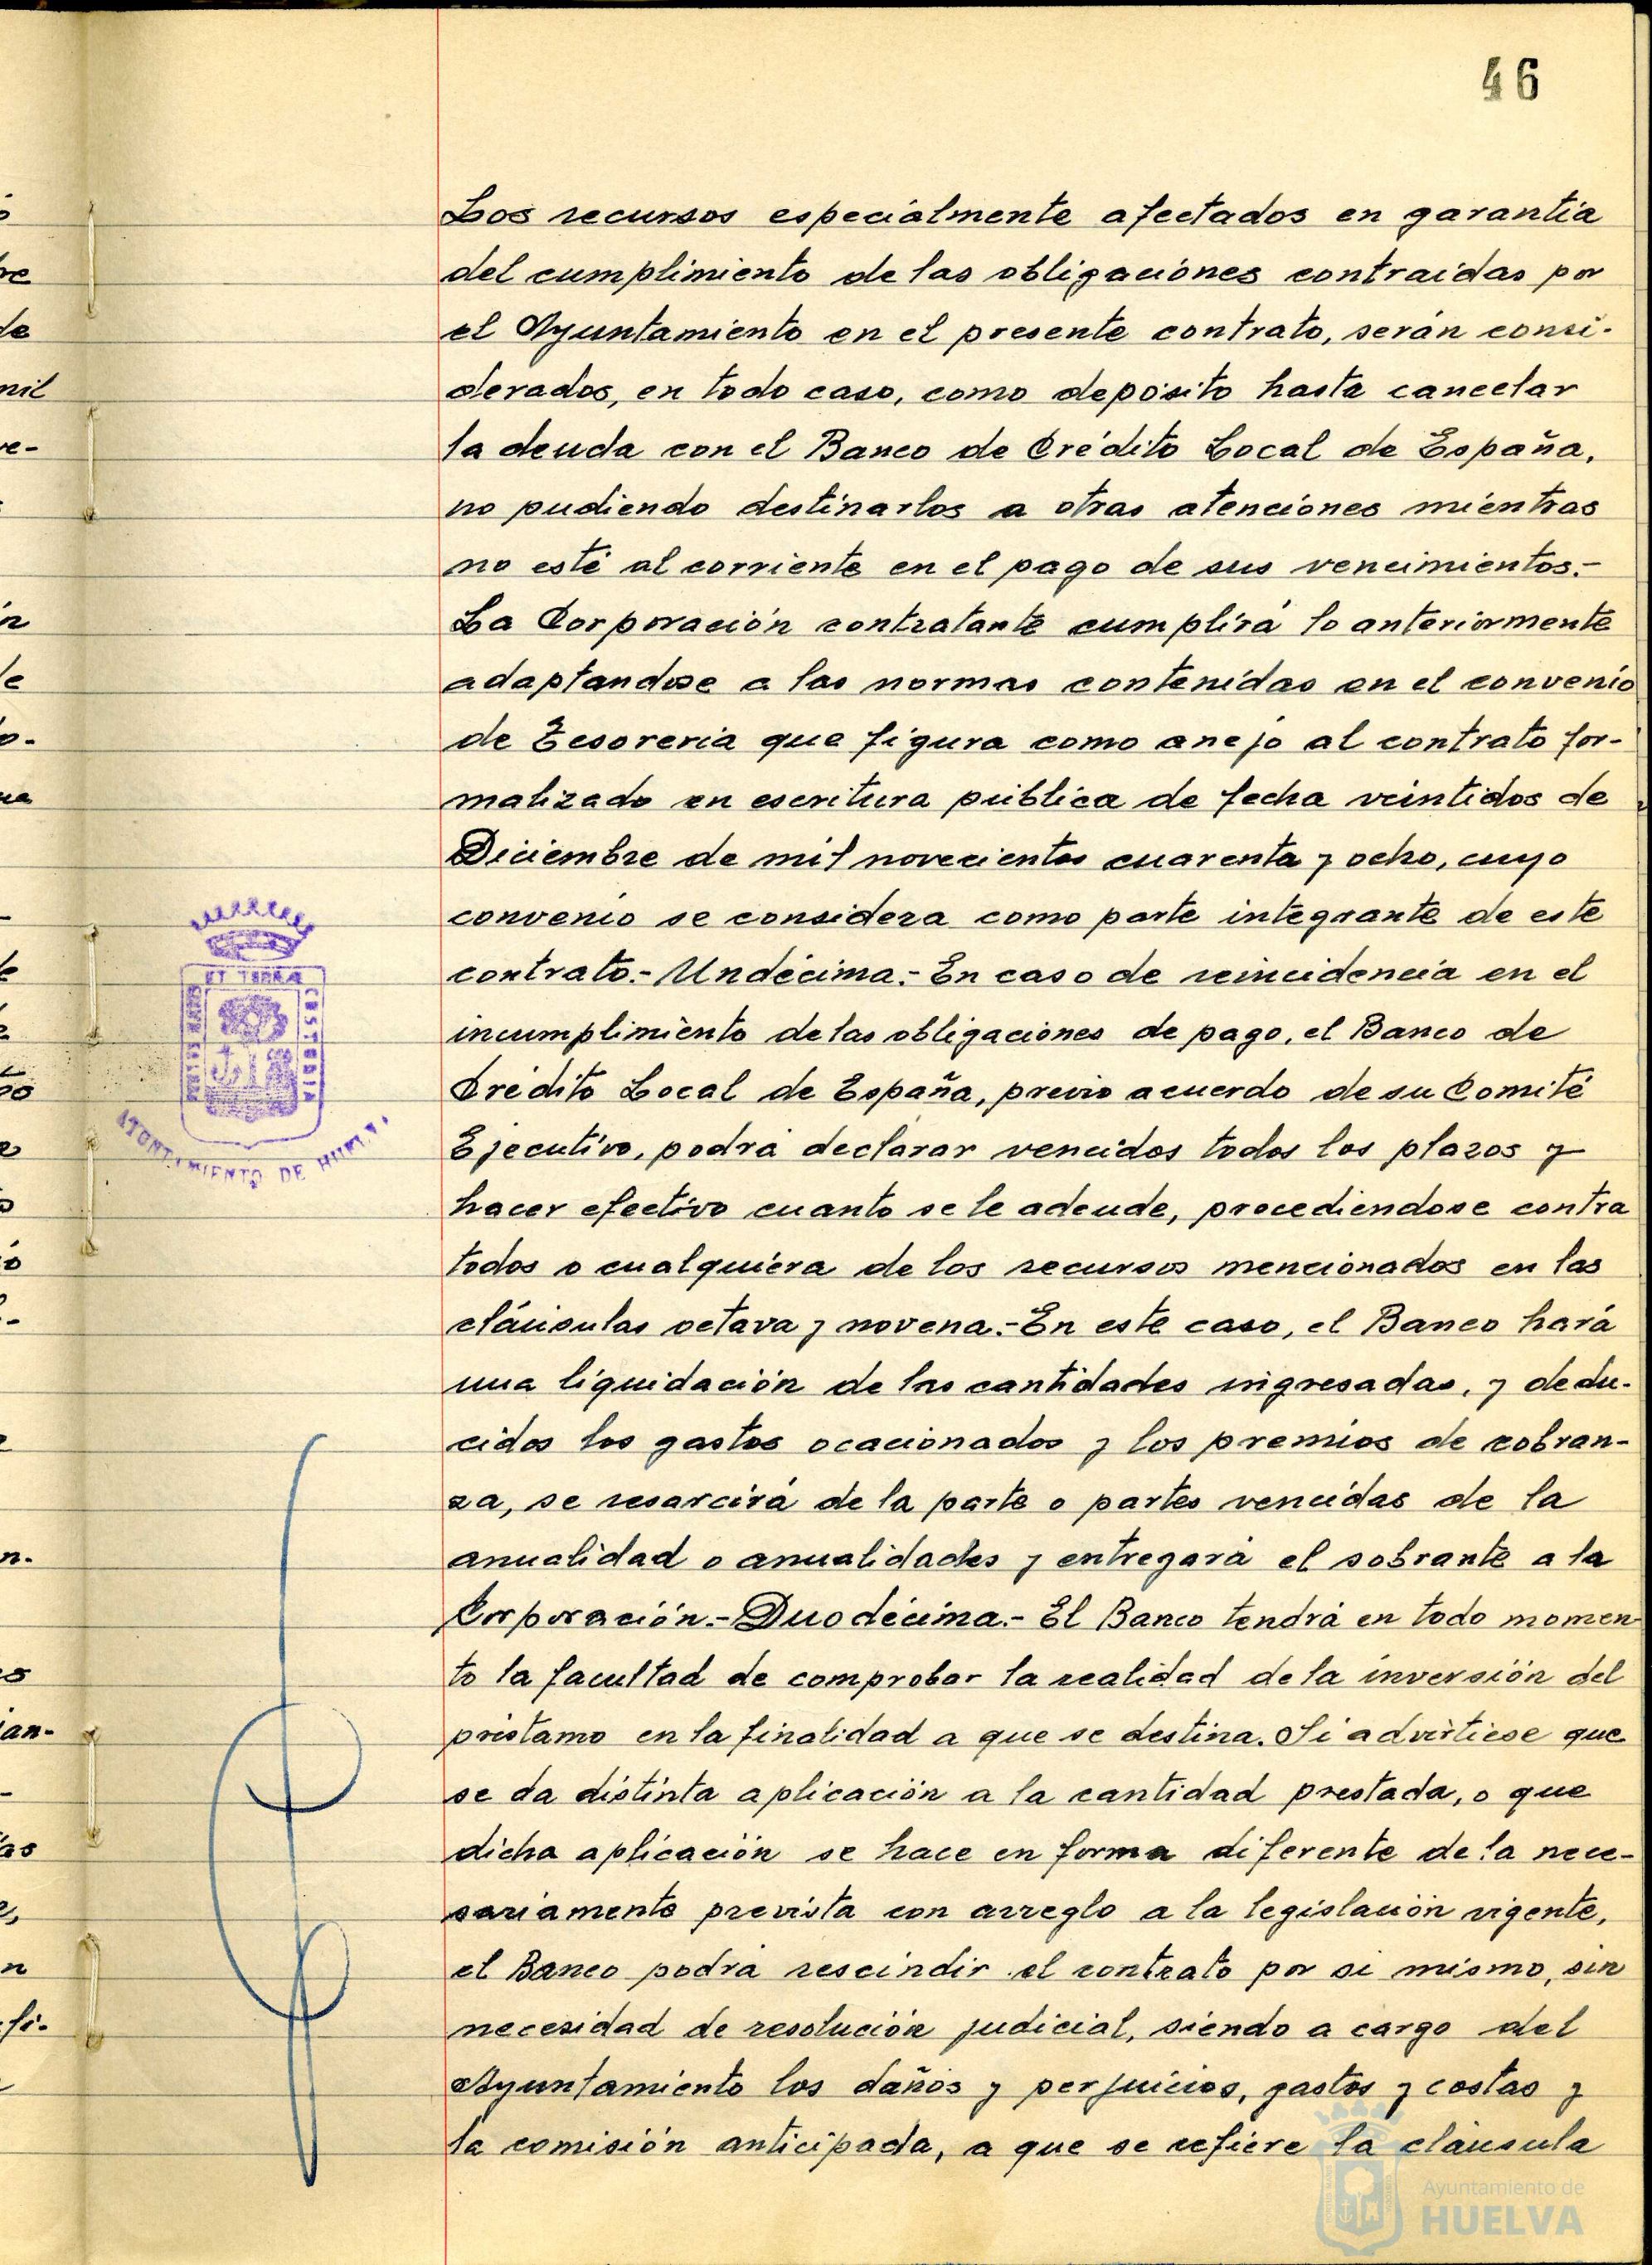 46
Los recursos especialmente afectados en garantía
del cumplimiento de las obligaciones contraidas por
el Ayuntamiento en el presente contrato, serán consi-
derados, en todo caso, como depósito hasta cancelar
la deuda con el Banco de Crédito Local de España,
no pudiendo destinarlos a otras atenciones mientras
no esté al corriente en el pago de sus vencimientos.-
La Corporación contratante cumplirá lo anteriormente
adaptandose a las normas contenidas en el convenio
de Tesoreria que figura como anejo al contrato for-
malizado en escritura pública de fecha veintidos de
Diciembre de mil novecientos cuarenta y ocho, cuyo
convenio se considera como parte integrante de este
contrato.- Undécima.- En caso de reincidencia en el
incumplimiento de las obligaciones de pago, el Banco de
Crédito Local de España, previo acuerdo de su Comité
Ejecutivo, podrá declarar vencidos todos los plazos y
hacer efectivo cuanto se le adeude, procediendose contra
todos o cualquiera de los recursos mencionados en las
cláusulas octava y novena.- En este caso, el Banco hará
una liquidación de las cantidades ingresadas, y dedu-
cidos los gastos ocacionados y los premios de cobran-
za, se resarcirá de la parte o partes vencidas de la
anualidad o anualidades y entregará el sobrante a la
Corporación.- Duodécima.- El Banco tendrá en todo momen-
to la facultad de comprobar la realidad de la inversión del
préstamo en la finalidad a que se destina. Si advirtiese que
se da distinta aplicación a la cantidad prestada, o que
dicha aplicación se hace en forma diferente de la nece-
sariamente prevista con arreglo a la legislación vigente,
el Banco podrá rescindir el contrato por si mismo, sin
necesidad de resolución judicial, siendo a cargo del
Ayuntamiento los daños y perjuicios, gastos y costas y
la comisión anticipada, a que se refiere la cláusula
ET TERRÆ
PORTUS MARIS
CUSTODIA
AYUNTAMIENTO DE HUELVA
Ayuntamiento de
HUELVA